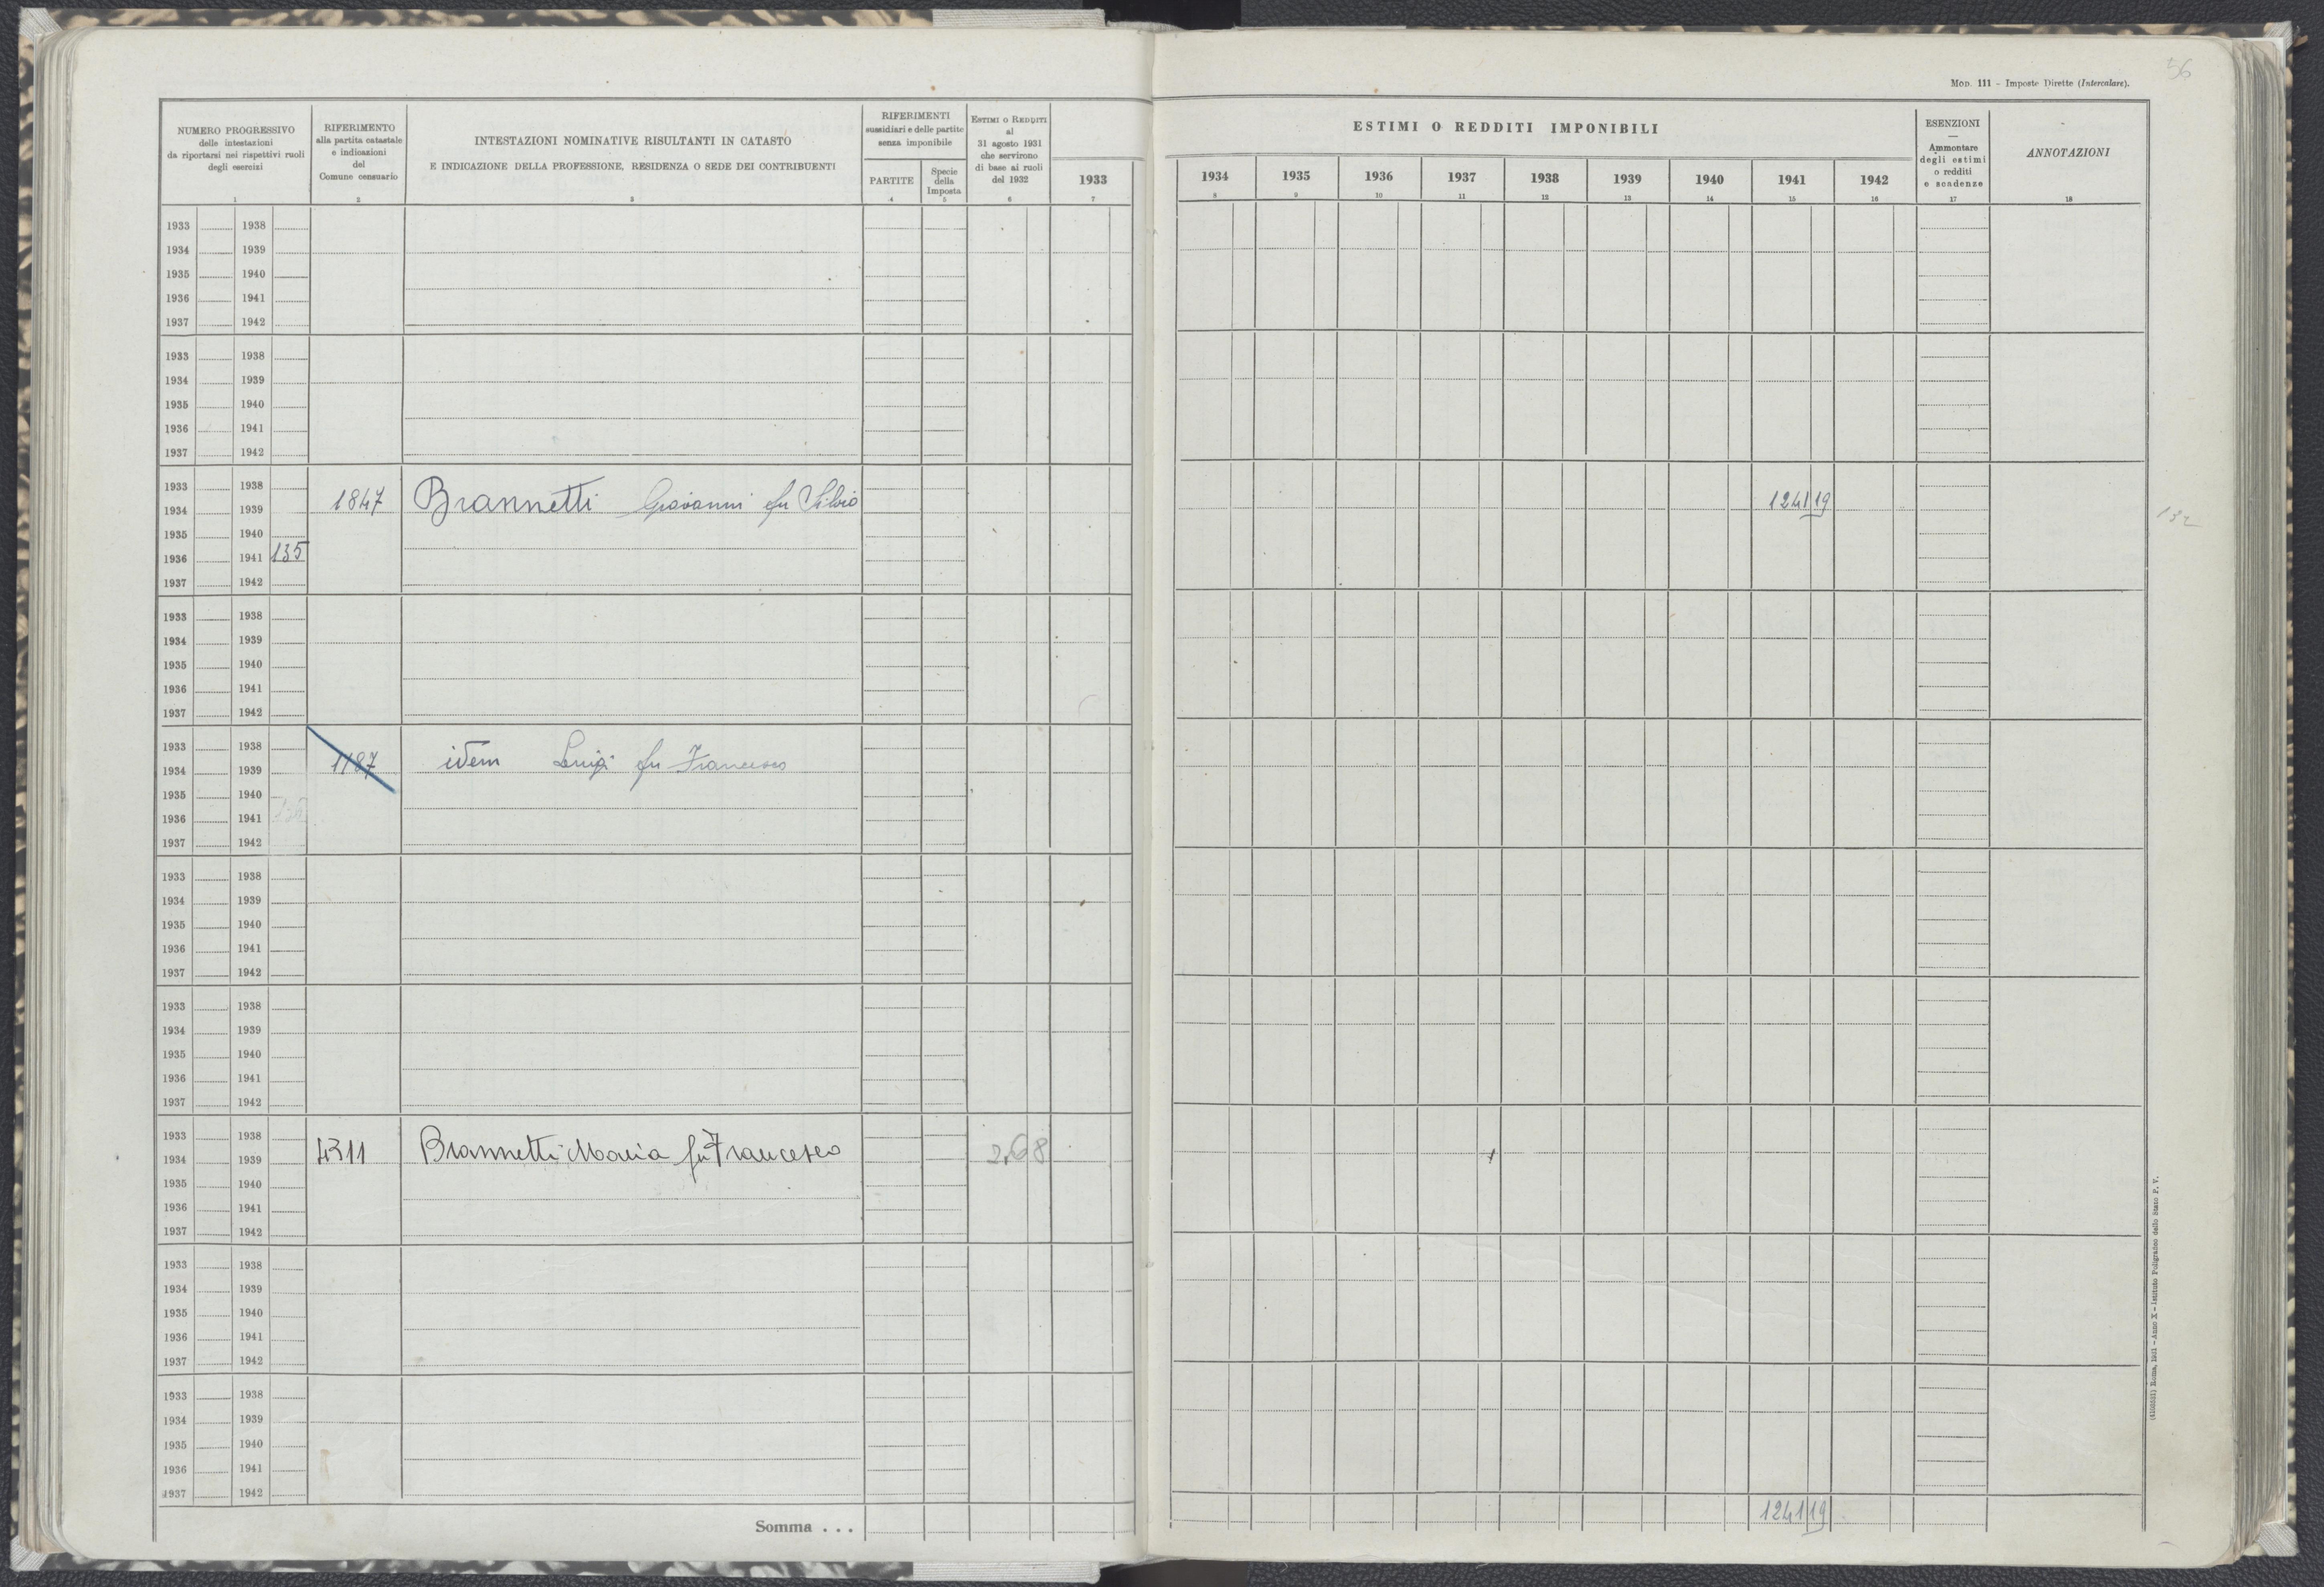 56
MOD. 111 - Imposte Dirette (Intercalare).
NUMERO PROGRESSIVO
delle intestazioni
da riportarsi nei rispettivi ruoli
degli esercizi
1
RIFERIMENTO
alla partita catastale
e indicazioni
del
Comune censuario
2
INTESTAZIONI NOMINATIVE RISULTANTI IN CATASTO
E INDICAZIONE DELLA PROFESSIONE, RESIDENZA O SEDE DEI CONTRIBUENTI
3
RIFERIMENTI
sussidiari e delle partite
senza imponibile
PARTITE
4
Specie
della
Imposta
5
ESTIMI O REDDITI
al
31 agosto 1931
che servirono
di base ai ruoli
del 1932
6
1933
7
ESTIMI O REDDITI IMPONIBILI
1934 1935 1936 1937 1938 1939 1940 1941 1942
8 9 10 11 12 13 14 15 16
ESENZIONI
—
Ammontare
degli estimi
o redditi
e scadenze
17
ANNOTAZIONI
18
1933 1938
1934 1939
1935 1940
1936 1941
1937 1942
1933 1938
1934 1939
1935 1940
1936 1941
1937 1942
1933 1938
1934 1939 1847 Brannetti Giovanni fu Silvio 1241 19
1935 1940
1936 1941 135
1937 1942
1933 1938
1934 1939
1935 1940
1936 1941
1937 1942
1933 1938
1934 1939 1187 idem Luigi fu Francesco
1935 1940
1936 1941 136
1937 1942
1933 1938
1934 1939
1935 1940
1936 1941
1937 1942
1933 1938
1934 1939
1935 1940
1936 1941
1937 1942
1933 1938
1934 1939 4311 Brannetti Maria fu Francesco 2,68
1935 1940
1936 1941
1937 1942
1933 1938
1934 1939
1935 1940
1936 1941
1937 1942
1933 1938
1934 1939
1935 1940
1936 1941
1937 1942
Somma . . . 1241 19
Roma, 1931 - Anno X - Istituto Poligrafico dello Stato P. V.